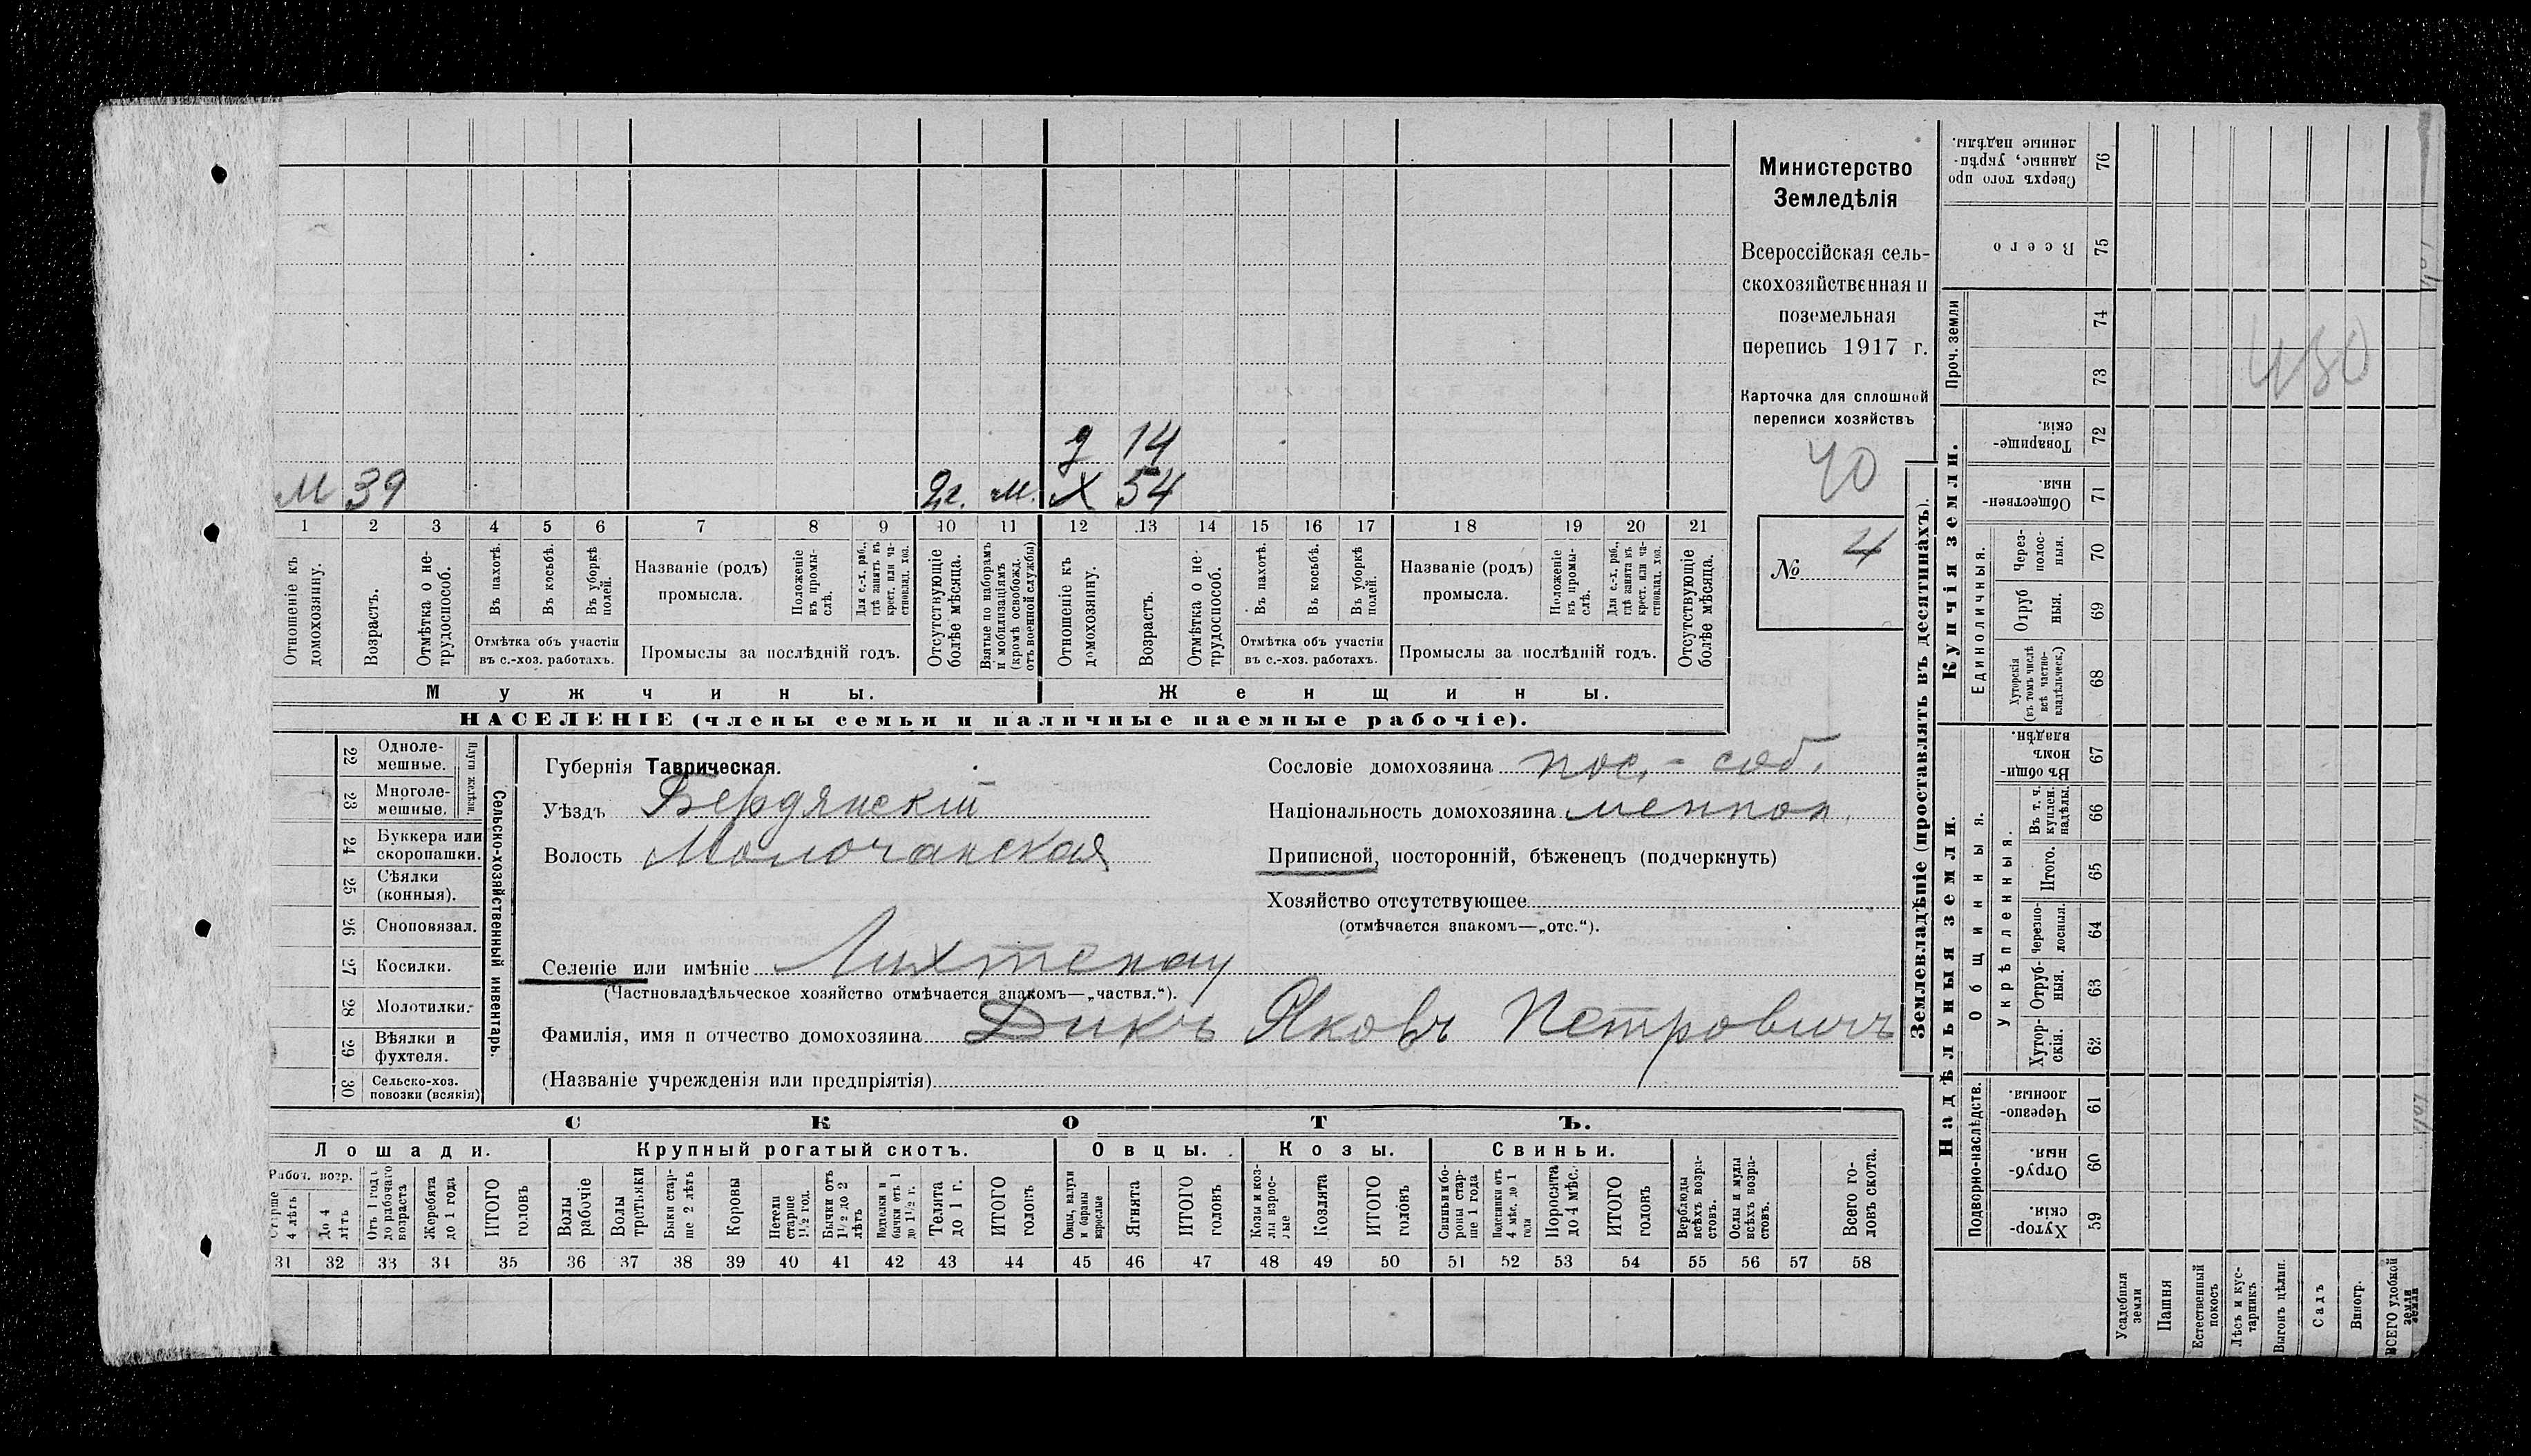 Министерство
Земледѣлія
Всероссійская сель-
скохозяйственная и
поземельная
перепись 1917 г.
Карточка для сплошной
переписи хозяйствъ
40
№ 4
д 14
М 39 2г. м. Х 54
1 2 3 4 5 6 7 8 9 10 11 12 13 14 15 16 17 18 19 20 21
Отношеніе къ домохозяину.
Возрастъ.
Отмѣтка о не-
трудоспособ.
Въ пахотѣ.
Въ косьбѣ.
Въ уборкѣ
полей.
Отмѣтка объ участіи
въ с.-хоз. работахъ.
Названіе (родъ)
промысла.
Положеніе
въ промы-
слѣ.
Для с.-х. раб.,
гдѣ занятъ въ
крест. или ча-
стновлад. хоз.
Промыслы за послѣдній годъ.
Отсутствующіе
болѣе мѣсяца.
Взятые по наборамъ
и мобилизаціямъ
(кромѣ освобожд.
отъ военной службы)
Отношеніе къ
домохозяину.
Возрастъ.
Отмѣтка о не-
трудоспособ.
Въ пахотѣ.
Въ косьбѣ.
Въ уборкѣ
полей.
Отмѣтка объ участіи
въ с.-хоз. работахъ.
Названіе (родъ)
промысла.
Положеніе
въ промы-
слѣ.
Для с.-х. раб.,
гдѣ занята въ
крест. или ча-
стновлад. хоз.
Промыслы за послѣдній годъ.
Отсутствующіе
болѣе мѣсяца.
Мужчины. Женщины.
НАСЕЛЕНІЕ (члены семьи и наличные наемные рабочіе).
22 Одноле-
мешные.
23 Многоле-
мешные.
24 Буккера или
скоропашки.
25 Сѣялки
(конныя).
26 Сноповязал.
27 Косилки.
28 Молотилки.
29 Вѣялки и
фухтеля.
30 Сельско-хоз.
повозки (всякія)
Сельско-хозяйственный инвентарь.
Губернія Таврическая.
Уѣздъ Бердянскій
Волость Молочанская
Селеніе или имѣніе Лихтенау
(Частновладѣльческое хозяйство отмѣчается знакомъ—„частвл.“).
Фамилія, имя и отчество домохозяина Дикъ Яковъ Петровичъ
(Названіе учрежденія или предпріятія)
Сословіе домохозяина пос.-соб.
Національность домохозяина меннон.
Приписной, посторонній, бѣженецъ (подчеркнуть)
Хозяйство отсутствующее
(отмѣчается знакомъ—„отс.“).
СКОТЪ.
Лошади. Крупный рогатый скотъ. Овцы. Козы. Свиньи.
Рабоч. возр.
4 лѣтъ
До 4
лѣтъ
Отъ 1 года
до рабочаго
возраста
Жеребята
до 1 года
ИТОГО
головъ
Волы
рабочіе
Волы
третьяки
Быки стар-
ше 2 лѣтъ
Коровы
Нетели
старше
1½ год.
Бычки отъ
1½ до 2
лѣтъ
бычки отъ 1
до 1½ г.
Телята
до 1 г.
ИТОГО
головъ
Овцы, валухи
и бараны
взрослые
Ягнята
ИТОГО
головъ
Козы и коз-
лы взрос-
лые
Козлята
ИТОГО
головъ
Свиньи и бо-
ровы стар-
ше 1 года
Подсвинки отъ
4 мѣс. до 1
года
Поросята
до 4 мѣс.
ИТОГО
головъ
Верблюды
всѣхъ возра-
стовъ.
Ослы и мулы
всѣхъ возра-
стовъ.
Всего го-
ловъ скота.
31 32 33 34 35 36 37 38 39 40 41 42 43 44 45 46 47 48 49 50 51 52 53 54 55 56 57 58
Землевладѣніе (проставлять въ десятинахъ).
Надѣльныя земли. Купчія земли. Проч. земли
Подворно-наслѣдств.
Общинныя.
Укрѣпленныя.
Единоличныя.
Хутор-
скія. 59
Отруб-
ныя. 60
Черезпо-
лосныя. 61
Хутор-
скія. 62
Отруб-
ныя. 63
Черезпо-
лосныя. 64
Итого. 65
Въ т. ч.
куплен.
надѣлы. 66
Въ общин-
номъ
владѣн. 67
Хуторскія
(въ томъ числѣ
всѣ частно-
владѣльческ.) 68
Отруб
ныя. 69
Через-
полос-
ныя. 70
Обществен-
ныя. 71
Товарище-
скія. 72
73
74
Всего 75
Сверхъ того про
данные, укрѣп-
ленные надѣлы. 76
Усадебныя
земли
Пашня
Естественный
покосъ
Лѣсъ и кус-
тарникъ
Выгонъ цѣлин.
Садъ
Виногр.
ВСЕГО удобной
земли
480